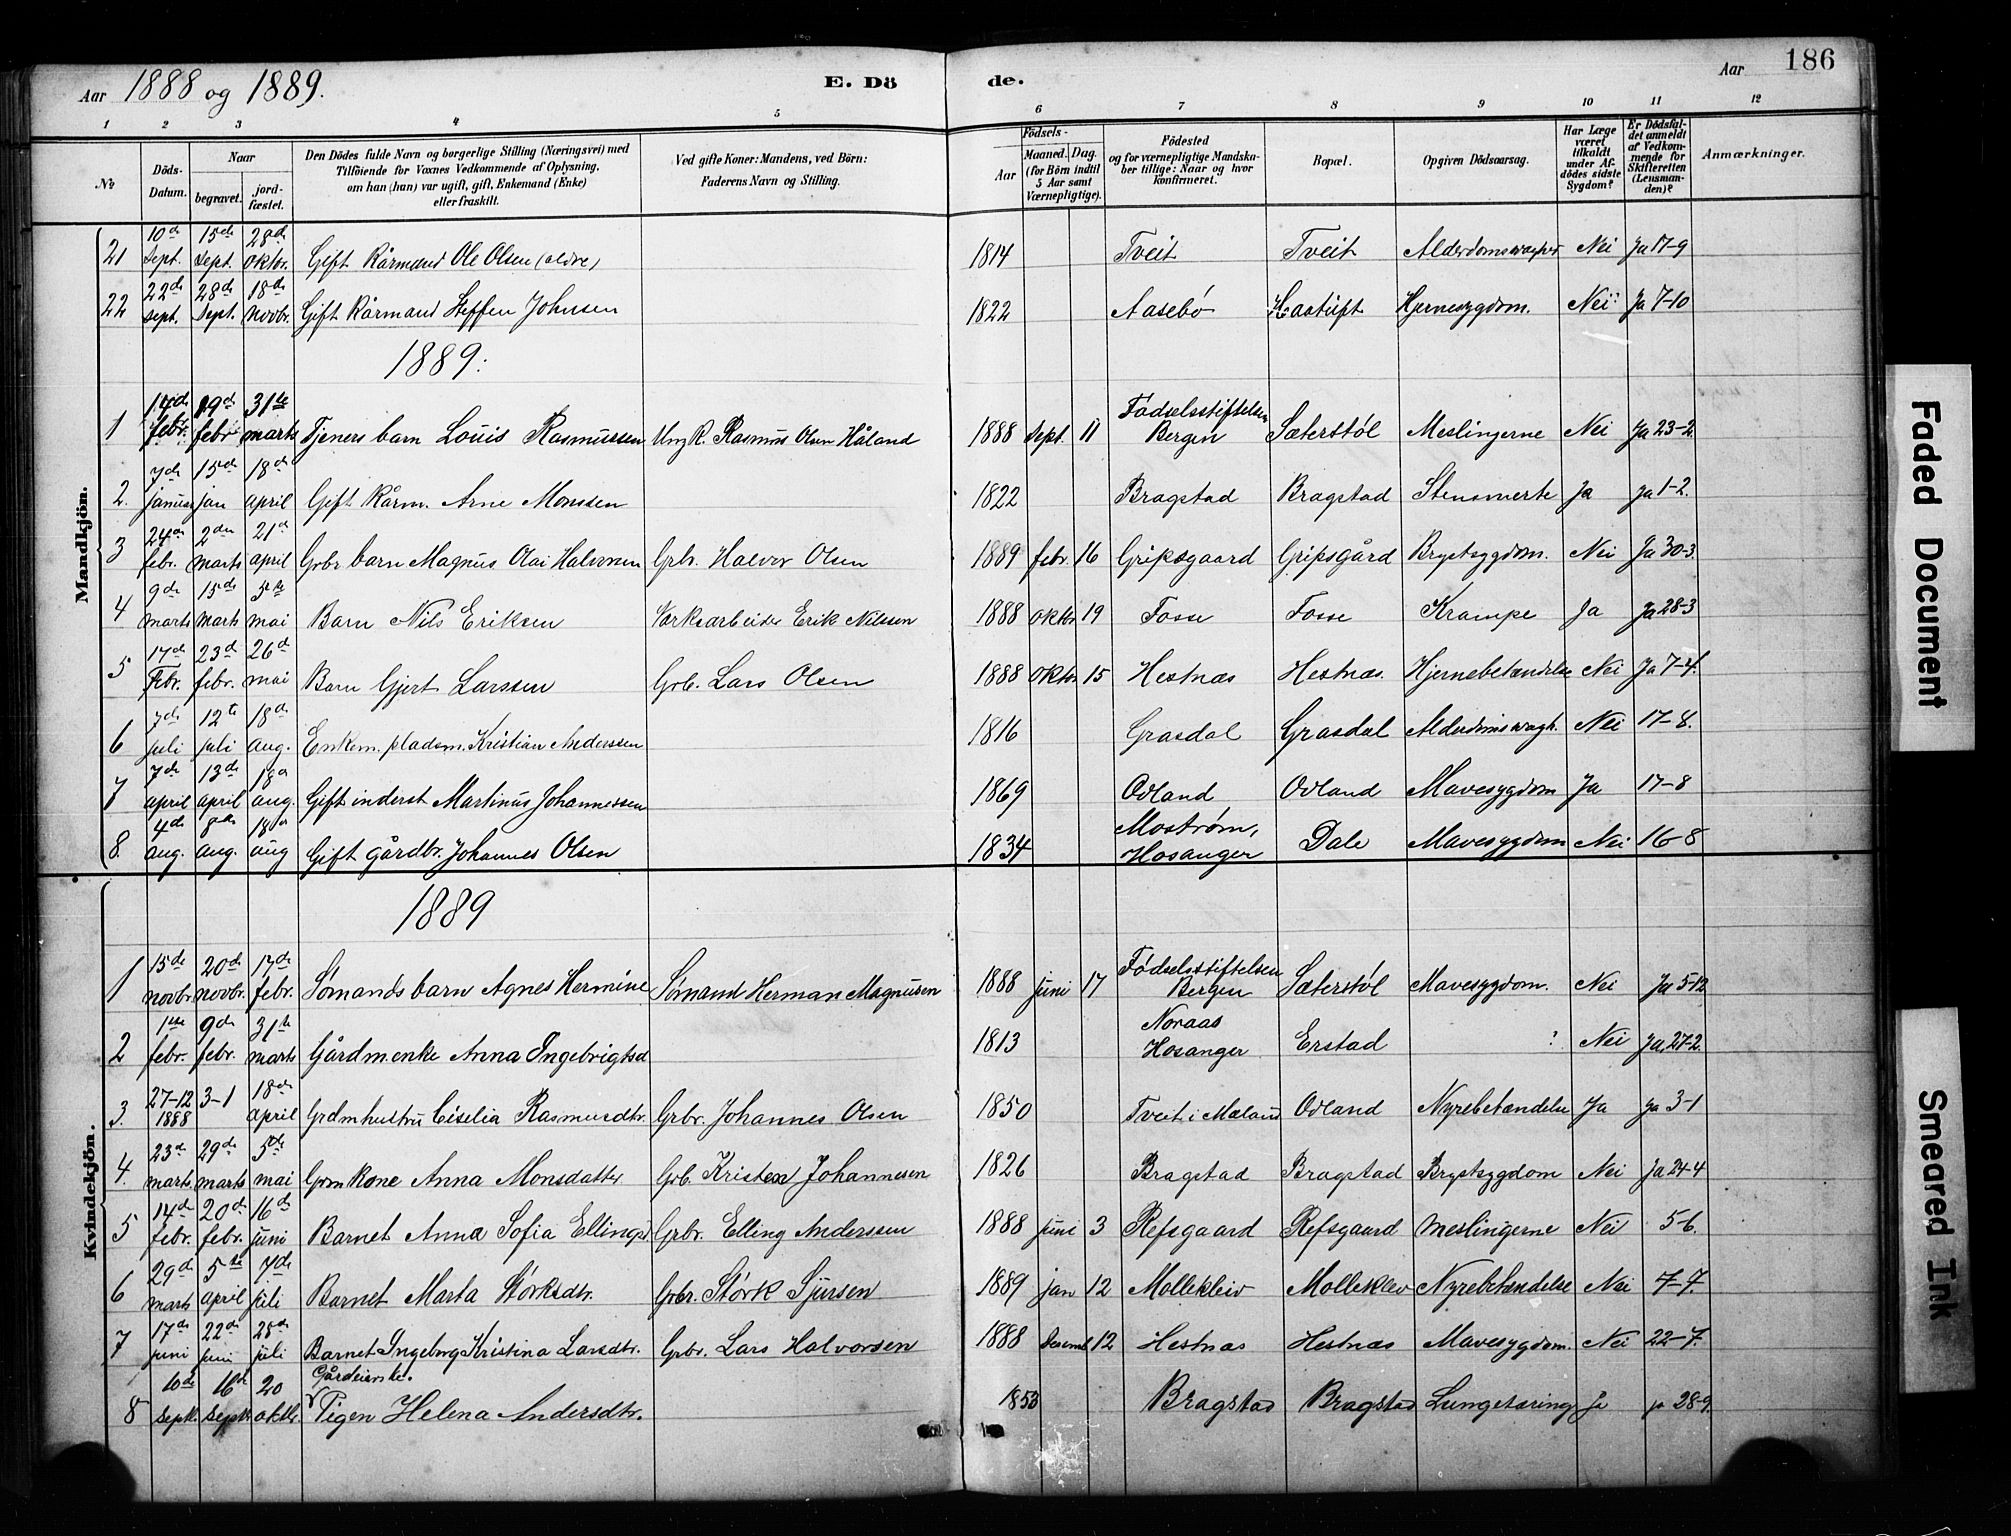 186
Aar 1888 og 1889. E. Dö de. Aar
1 2 3 4 5 6 7 8 9 10 11 12
№
Döds-Datum.
Naar
begravet.
jord-fæstet.
Den Dödes fulde Navn og borgerlige Stilling (Næringsvei) med
Tilföiende for Voxnes Vedkommende af Oplysning,
om han (hun) var ugift, gift, Enkemand (Enke)
eller fraskilt.
Ved gifte Koner: Mandens, ved Börn:
Faderens Navn og Stilling.
Födsels-
Aar
Maaned. Dag.
(for Börn indtil
5 Aar samt
Værnepligtige).
Födested
og for værnepligtige Mandska-
ber tillige: Naar og hvor
konfirmeret.
Bopæl.
Opgiven Dödsaarsag.
Har Læge
været
tilkaldt
under Af-
dödes sidste
Sygdom?
Er Dödsfal-
det anmeldt
af Vedkom-
mende for
Skifteretten
(Lensman-
den)?
Anmærkninger.
Mandkjön.
21 10de Sept. 15de Sept. 28de oktbr. Gift Kårmand Ole Olsen (eldre) 1814 Tveit Tveit Nei Ja 17-9
22 22de sept. 28de Sept. 18de Novbr. Gift Kårmand Steffen Johnsen 1822 Aasebø Hjernesygdom. Nei Ja 7-10
1889:
1 14de febr. 19de febr. 31te marts Tjeners barn Louis Rasmussen Ung K. Rasmus Olsen Håland 1888 Sept. 11 Fødselsstiftelsen Bergen Sæterstøl Meslingerne Nei Ja 23-2
2. 7de januar 15de jan 18de april Gift Kårm. Arne Monssen 1822 Bragstad Bragstad Stensmerte Ja Ja 1-2.
3 24de febr. 2den marts 21de april Grbr barn Magnus Olai Halvorsen Grbr. Halvor Olsen 1889 febr. 16 Gripsgaard Gripsgård Brystsygdom. Nei Ja 30-3
4 9de marts 15de marts 5te mai Barn Nils Eriksen Værksarbeider Erik Nilssen 1888 oktbr 19 Fosse Fosse Krampe Ja Ja 28-3
5 17de Febr. 23de febr. 26de mai Barn Gjert Larssen Grb. Lars Olsen 1888 oktbr. 15 Hestnæs Hestnæs. Hjernebetændelse Nei Ja 7-4.
6 7de juli 12te juli 18de aug. Enkem. pladsm. Kristian Anderssen 1816 Grasdal Grasdal Nei 17-8.
7 7de april 13de april 18de aug. Gift inderst Martinus Johannessen 1869 Odland Odland Mavesygdom Ja 17-8
8. 4de aug. 8de aug. 18de aug Gift gårdbr. Johannes Olsen 1834 Mostrøm, Hosanger Dale Mavesygdom Nei 16-8
Kvindekjön.
1889
1 15de novbr. 20de novbr. 17de febr. Sømands barn Agnes Hermine Sømand Herman Magnusen 1888 juni 17 Fødselsstiftelsen Bergen Sæterstøl Mavesygdom. Nei Ja 5-12
2 1ste febr. 9de febr. 31te marts Gårdm.enke Anna Ingebrigtsd 1813 Noraas Hosanger Erstad ? Nei Ja 27-2.
3. 27-12 1888 3-1 18de april Grdmhustru Ciselia Rasmusdtr. Grbr. Johannes Olsen 1850 Tveit i Mæland Odland Nyrebetændelse Ja Ja 3-1
4. 23de marts 29de marts 5te mai Grmkone Anna Monsdatter Grb. Kristen Johannesen 1826 Bragstad Bragstad Brystsygdom Nei Ja 24-4
5 14de febr. 20de febr. 16de juni Barnet Anna Sofia Ellingsd Grbr. Elling Anderssen 1888 juni 3 Refsgaard Refsgaard Meslingerne Nei 5-6.
6 29de marts 5te april 7de juli Barnet Marta Størksdtr. Grbr. Størk Sjursen 1889 jan 12 Mollekleiv Molleklev Nyrebetændelse Nei 7-7.
7 17de juni 22de juni 28de juli Barnet Ingeborg Kristina Larsdtr. Grbr. Lars Halvorsen 1888 Desemb 12 Hestnæs Hestnæs Mavesygdom. Nei 22-7.
8 10de Septbr. 16de Septbr. 20 oktbr. Pigen Helena Andersdtr. 1853 Bragstad Bragstad Lungetæring Ja ja 28-9.
Faded Document
Smeared Ink